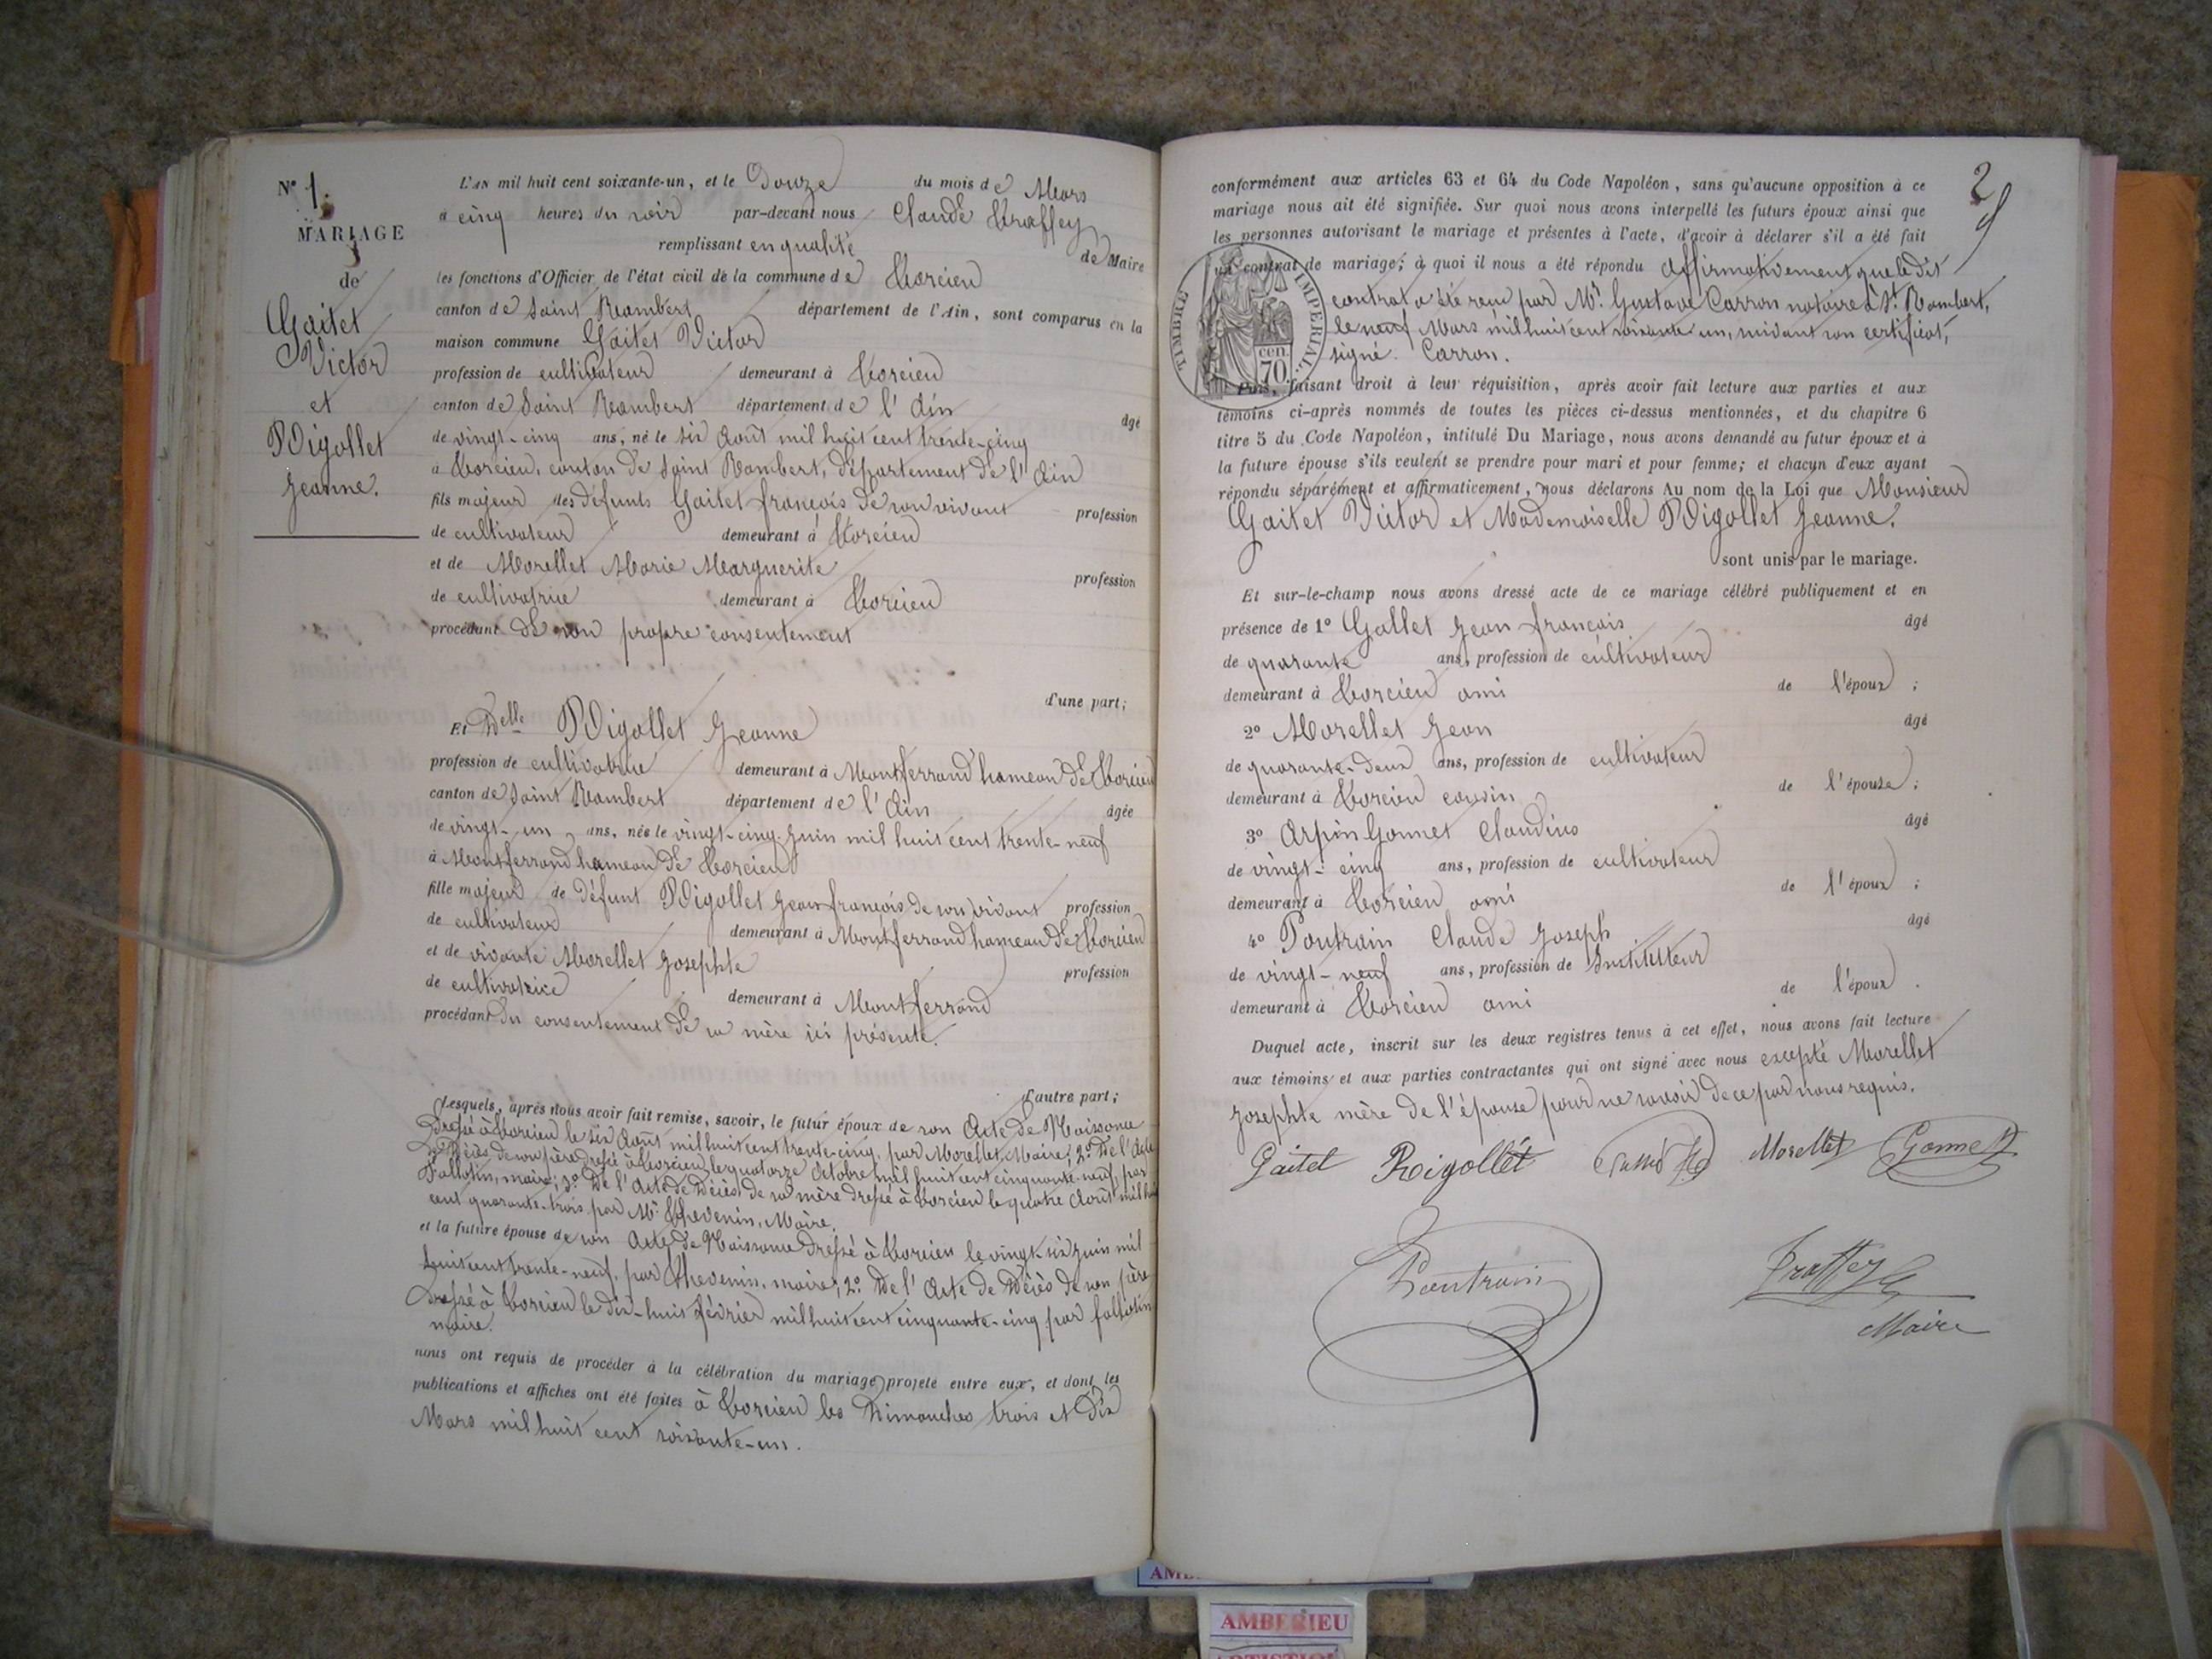 N° 1.
MARIAGE
de
Gaitet
Victor
et
Rigollet
Jeanne.
L'AN mil huit cent soixante-un, et le Douze du mois de Mars
à cinq heures du soir par-devant nous Claude Traffey
remplissant en qualité de Maire
les fonctions d'Officier de l'état civil de la commune de Torcieu
canton de Saint Rambert département de l'Ain, sont comparus en la
maison commune Gaitet Victor
profession de cultivateur demeurant à Torcieu
canton de Saint Rambert département de l'Ain âgé
de vingt-cinq ans, né le six Août mil huit cent trente-cinq
à Torcieu, canton de Saint Rambert, département de l'Ain
fils majeur des défunts Gaitet françois de son vivant profession
de cultivateur demeurant à Torcieu
et de Morellet Marie Marguerite profession
de cultivatrice demeurant à Torcieu
procédant de son propre consentement
d'une part;
Et Delle Rigollet Jeanne
profession de cultivatrice demeurant à Montferrand hameau de Torcieu
canton de Saint Rambert département de l'Ain âgée
de vingt-un ans, née le vingt-cinq Juin mil huit cent trente-neuf
à Montferrand hameau de Torcieu
fille majeur de défunt Rigollet Jean françois de son vivant profession
de cultivateur demeurant à Montferrand hameau de Torcieu
et de vivante Morellet Josephte profession
de cultivatrice demeurant à Montferrand
procédant du consentement de sa mère ici présente.
d'autre part;
Lesquels, après nous avoir fait remise, savoir, le futur époux de son Acte de Naissance
Dressé à Torcieu le six Août mil huit cent trente-cinq, par Morellet, Maire; 2° De l'Acte
de Décès de son père dressé à Torcieu le quatorze Octobre mil huit cent cinquante-neuf, par
FalloTin, maire; 3° De l'Acte de Décès de sa mère dressé à Torcieu le quatre Août mil huit
cent quarante-trois par Mr Thevenin, Maire.
et la future épouse de son Acte de Naissance dressé à Torcieu le vingt-six juin mil
huit cent trente-neuf, par Thevenin, maire; 2° De l'Acte de Décès de son père
Dressé à Torcieu le dix-huit février mil huit cent cinquante-cinq par
maire.
nous ont requis de procéder à la célébration du mariage projeté entre eux, et dont les
publications et affiches ont été faites à Torcieu les Dimanches trois et dix
Mars mil huit cent soixante-un.
2
conformément aux articles 63 et 64 du Code Napoléon, sans qu'aucune opposition à ce
mariage nous ait été signifiée. Sur quoi nous avons interpellé les futurs époux ainsi que
les personnes autorisant le mariage et présentes à l'acte, d'avoir à déclarer s'il a été fait
un contrat de mariage; à quoi il nous a été répondu affirmativement que le dit
contrat a été reçu par Mr. Gustave Carron notaire à St. Rambert,
le neuf Mars mil huit cent soixante un, suivant son certificat,
signé. Carron.
TIMBRE IMPERIAL
cen.
70
Puis, faisant droit à leur réquisition, après avoir fait lecture aux parties et aux
témoins ci-après nommés de toutes les pièces ci-dessus mentionnées, et du chapitre 6
titre 5 du Code Napoléon, intitulé Du Mariage, nous avons demandé au futur époux et à
la future épouse s'ils veulent se prendre pour mari et pour femme; et chacun d'eux ayant
répondu séparément et affirmativement, nous déclarons Au nom de la Loi que Monsieur
Gaitet Victor et Mademoiselle Rigollet Jeanne.
sont unis par le mariage.
Et sur-le-champ nous avons dressé acte de ce mariage célébré publiquement et en
présence de 1° Gallet Jean françois âgé
de quarante ans, profession de cultivateur
demeurant à Torcieu ami de l'époux ;
2° Morellet Jean âgé
de quarante-deux ans, profession de cultivateur
demeurant à Torcieu cousin de l'épouse ;
3° Arpin Gonnet Claudius âgé
de vingt-cinq ans, profession de cultivateur
demeurant à Torcieu ami de l'époux ;
4° Poutrain Claude Joseph âgé
de vingt-neuf ans, profession de Instituteur
demeurant à Torcieu ami de l'époux .
Duquel acte, inscrit sur les deux registres tenus à cet effet, nous avons fait lecture
aux témoins et aux parties contractantes qui ont signé avec nous excepté Morellet
Josephte mère de l'épouse pour ne savoir de ce par nous requis.
Gaitet Rigollet Morellet Gonnet
Poutrain Traffey
Maire
AMBERIEU